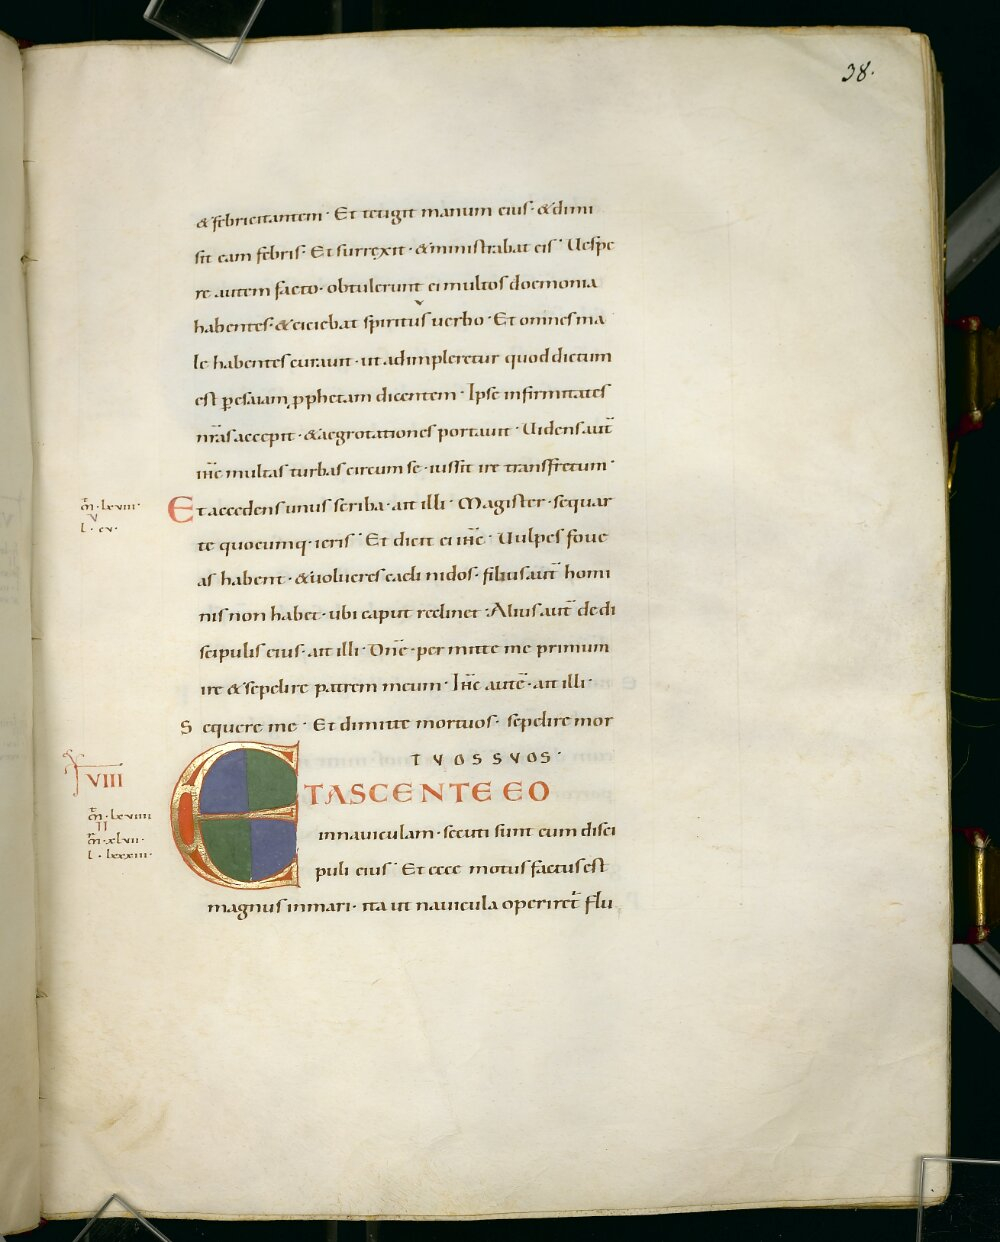 38.
& febricitantem · Et tetigit manum eius · & dimi
sit eam febris · Et surrexit · & ministrabat eis · Uespe
re autem facto · obtulerunt ei multos doemonia
habentes · & eiciebat spiritus uerbo · Et omnes ma
le habentes curauit · ut adimpleretur quod dictum
est ꝑ esaiam ꝓphetam dicentem · Ipse infirmitates
nr̄as accepit · & aegrotationes portauit · Uidens aut̄
ih̄c multas turbas circum se · iussit ire transfretum ·
m̄ · lxviii ·
V
l · cv ·
Et accedens unus scriba · ait illi · Magister · sequar
te quocumq · ieris · Et dicit ei ih̄c · Uulpes foue
as habent · & uolucres caeli nidos · filius aut̄ homi
nis non habet · ubi caput reclinet · Alius aut̄ de di
scipulis eius · ait illi · Dn̄e · permitte me primum
ire & sepelire patrem meum · Ih̄c autē · ait illi ·
Sequere me · Et dimitte mortuos · sepelire mor
TUOS SUOS ·
VIII
ET ASCENTE EO
m̄ · lxviiii
II
m̄ · xlvii ·
l · lxxxiii ·
in nauiculam · secuti sunt eum disci
puli eius · Et ecce motus factus est
magnus in mari · ita ut nauicula operiret̄ flu